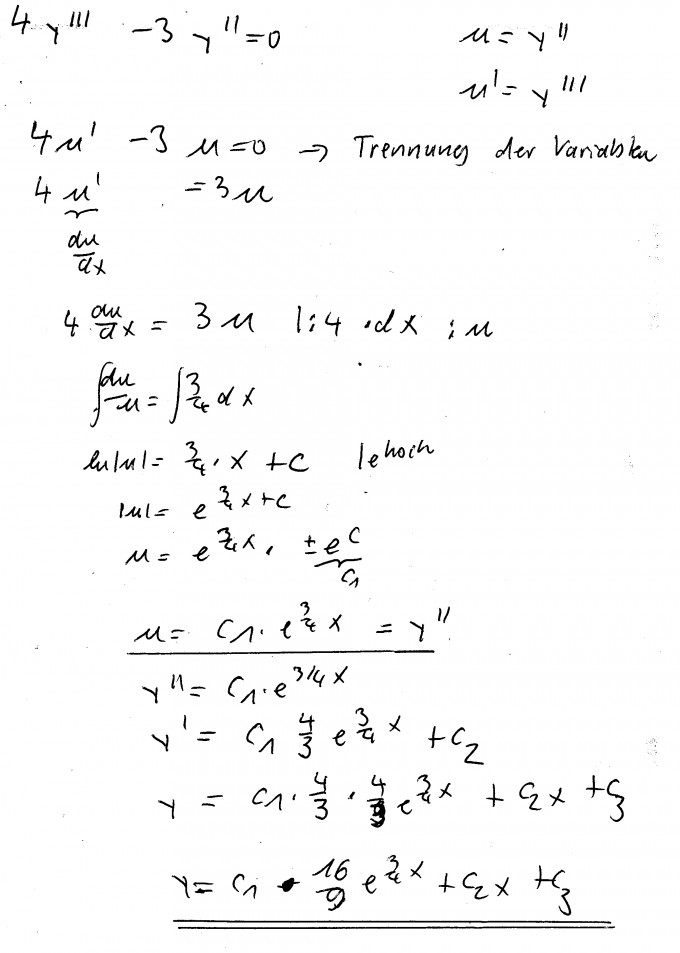 4 y''' - 3 y'' = 0    u = y''
u' = y'''
4u' - 3 u = 0 → Trennung der Variablen
4 u' = 3u
du/dx
4 du/dx = 3 u |:4 ·dx :u
∫ du/u = ∫ 3/4 dx
ln|u| = 3/4 · x + C |e hoch
|u| = e^(3/4 x + C)
u = e^(3/4 x) · ± e^C
C1
u = C1 · e^(3/4 x) = y''
y'' = C1 · e^(3/4 x)
y' = C1 4/3 e^(3/4 x) + C2
y = C1 · 4/3 · 4/3 e^(3/4 x) + C2 x + C3
y = C1 · 16/9 e^(3/4 x) + C2 x + C3